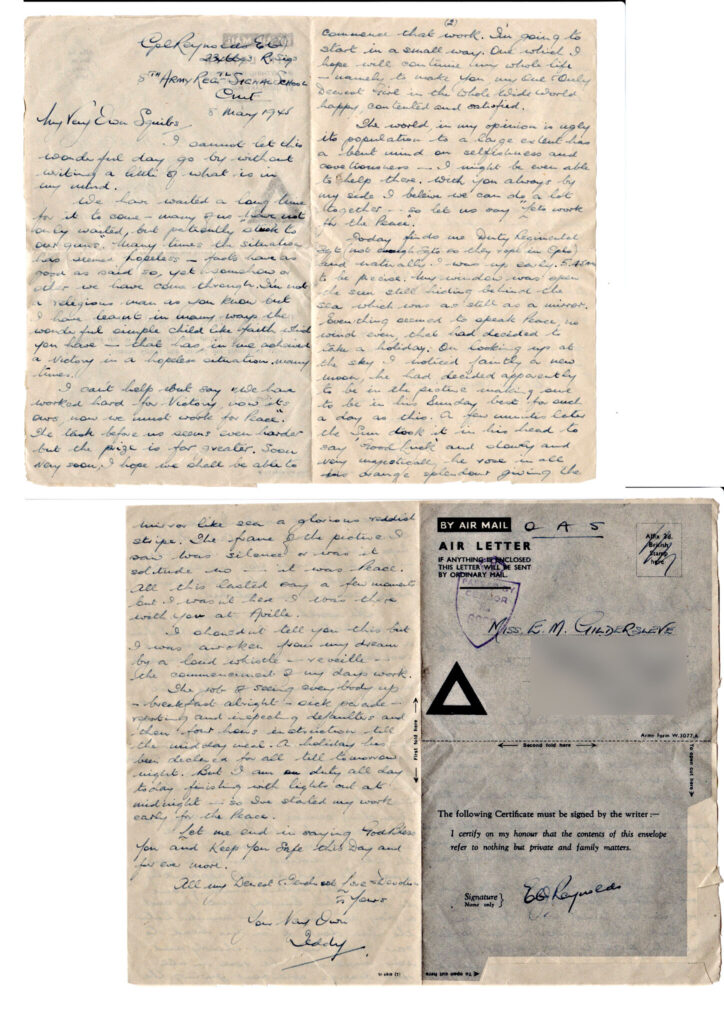 Cpl Reynolds E.O.
R. Sigs
5TH ARMY REGTL SIGNAL SCHOOL
CMF
8 May 1945
My Very Own Squibs,
I cannot let this
wonderful day go by without
writing a little of what is in
my mind.
We have waited a long time
for it to come – many of us have not
only waited, but patiently stuck to
our guns". Many times the situation
has seemed hopeless – facts have as
good as said so, yet somehow or
other we have come through. I'm not
a religious man as you know but
I have learnt in many ways the
wonderful simple child like faith which
you have – that has, in me achieved
a Victory in a hopeless situation many
times.
I can't help but say "We have
worked hard for Victory, now it's
ours, now we must work for Peace".
The task before us seems even harder
but the prize is far greater. Soon
very soon, I hope we shall be able to
(2)
commence that work. I'm going to
start in a small way. One which I
hope will continue my whole life
– namely to make you my One & Only
Dearest Girl in the Whole Wide World
happy, contented and satisfied.
The world, in my opinion is ugly
its population to a large extent has
a bent mind on selfishness and
covetousness – I might be even able
to help there. With you always by
my side I beleive we can do a lot
together – so let us say "Lets work
for the Peace."
Today finds me Duty Regimental
Sgt (not enough Sgts so they rope in Cpls)
and naturally I was up early. 5.45am
to be precise. My window was open
the sun still hiding behind the
sea which was as still as a mirror.
Everything seemed to speak Peace, no
wind even, that had decided to
take a holiday. On looking up at
the sky I noticed faintly a new
moon, he had decided apparently
to be in the picture making sure
to be in his Sunday best for such
a day as this. A few minutes later
the Sun took it in his head to
say "Good luck" and slowly and
very majestically he rose in all
his orange splendour giving the
mirror like sea a glorious reddish
stripe. The frame of the picture I
saw was silence or was it
solitude no – it was Peace.
All this lasted say a few moments
but I wasn't here I was there
with you at
I shouldn't tell you this but
I was awoken from my dream
by a loud whistle – reveille –
the commencement of my days work.
The job of seeing everybody up
– breakfast alright – sick parade –
reporting and inspecting defaulters and
then four hours instruction till
the midday meal. A holiday has
been declared for all till tomorrow
night. But I am on duty all day
today finishing with lights out at
midnight – so I've started my work
early for the Peace.
Let me end in saying God Bless
You and Keep You Safe this Day and
for ever more.
All my Dearest & Love & Devotion
Is Yours
Your Very Own
Teddy.
First fold here
BY AIR MAIL
O A S
AIR LETTER
IF ANYTHING IS ENCLOSED
THIS LETTER WILL BE SENT
BY ORDINARY MAIL.
Affix 2d.
British
Stamp
here
MISS. E. M. GILDERSLEVE
Army Form W.3077A
Second fold here
To open cut here
The following Certificate must be signed by the writer:—
I certify on my honour that the contents of this envelope
refer to nothing but private and family matters.
Signature
Name only
EO Reynolds
To open cut here